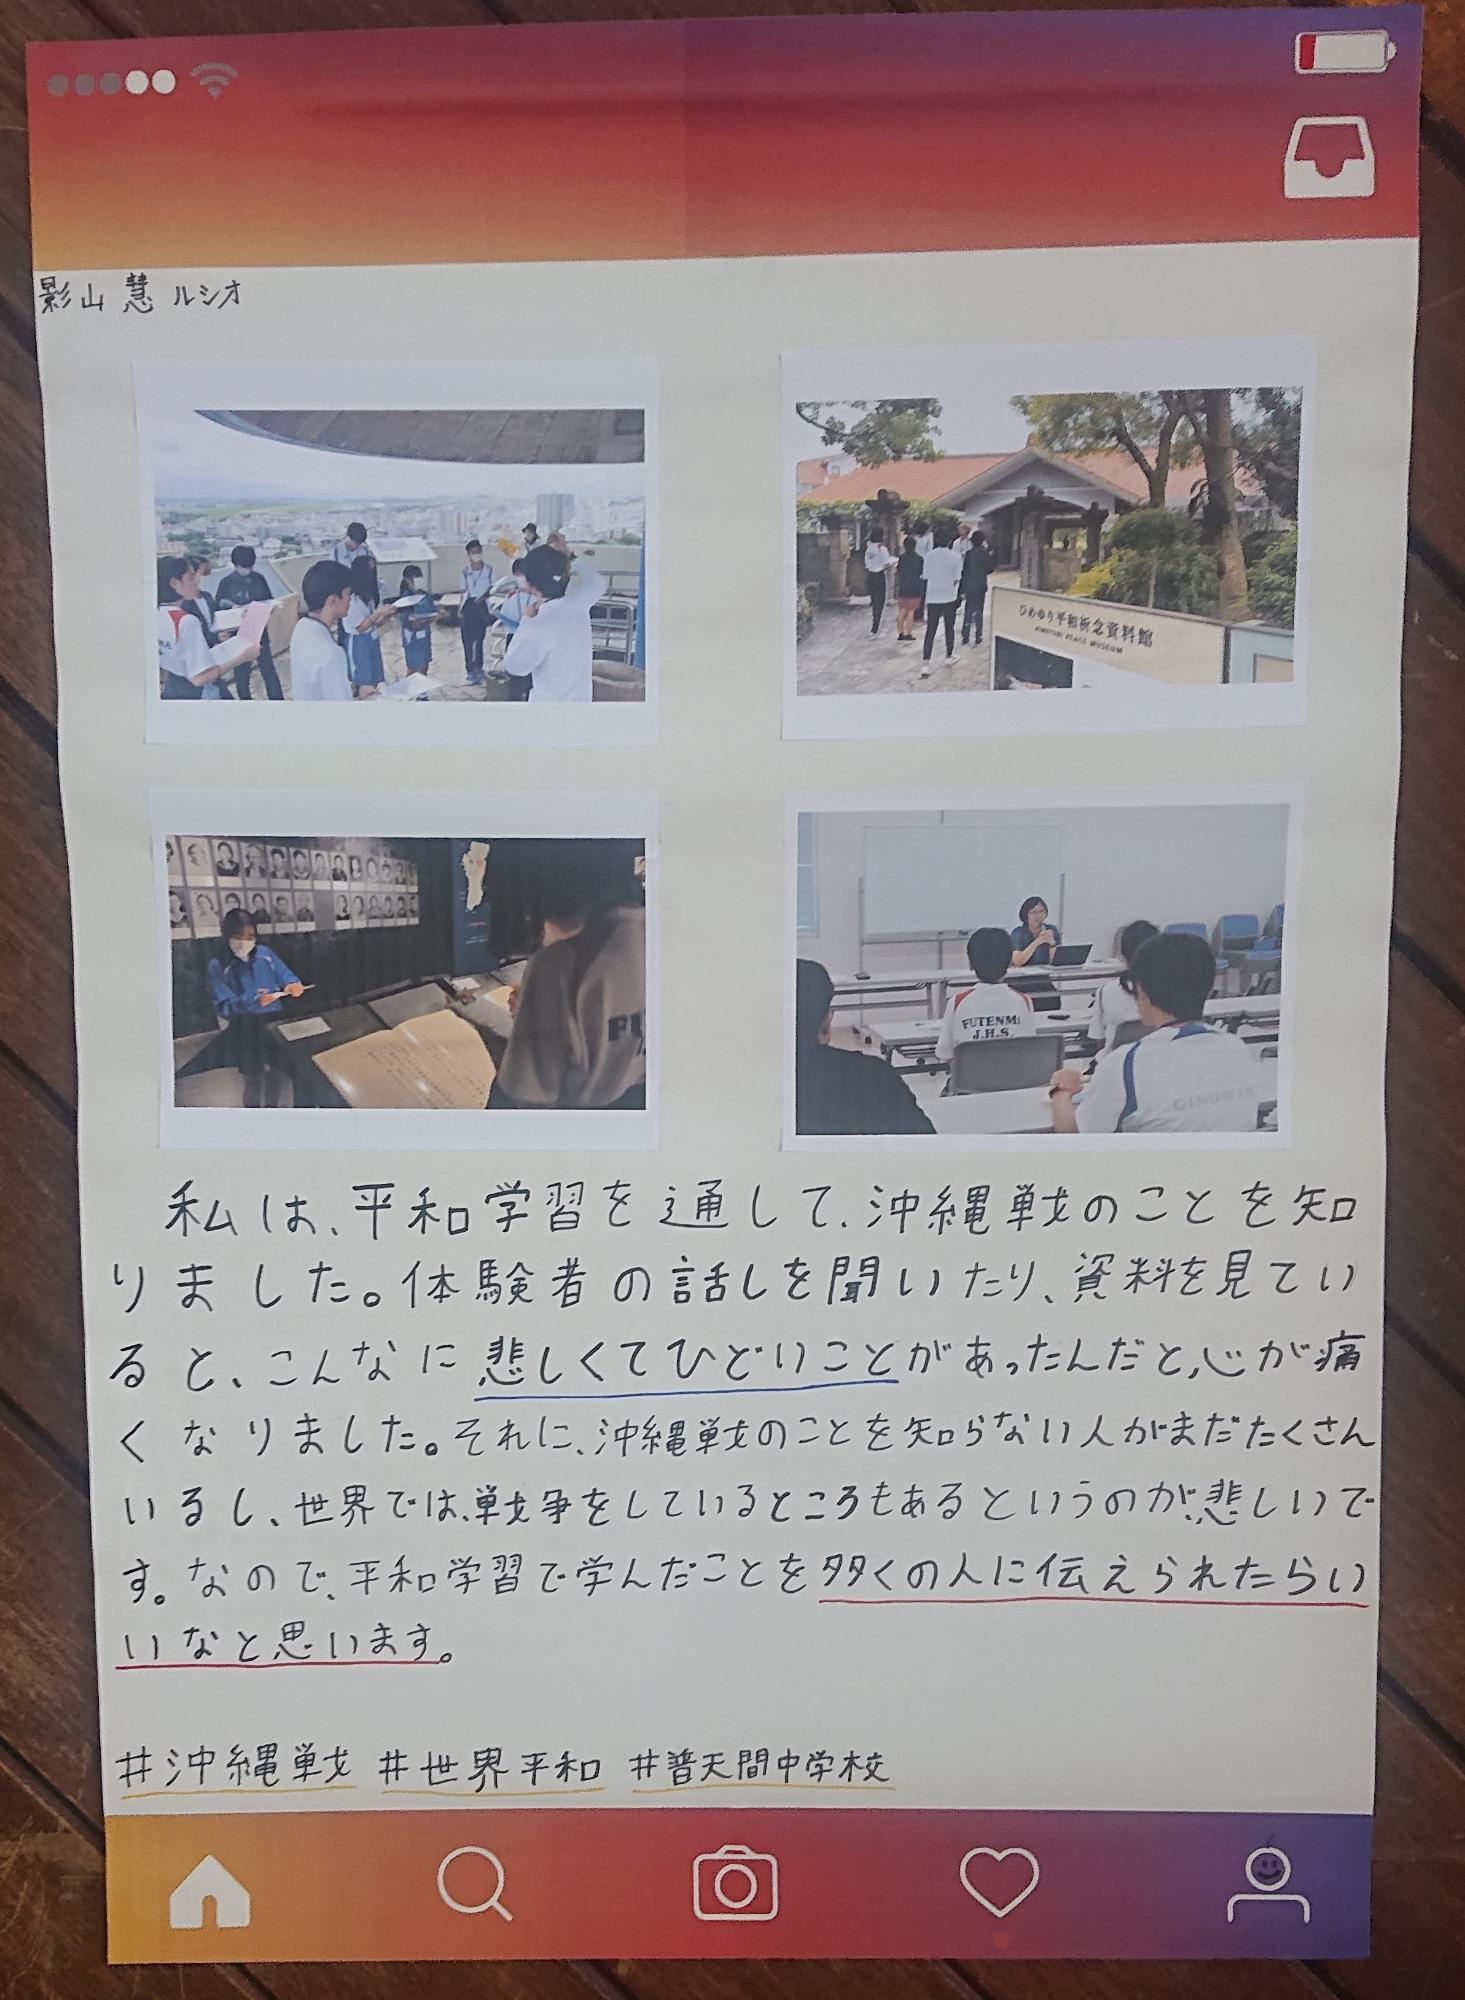 影山 慧 ルシオ
ひめゆり平和祈念資料館
HIMEYURI PEACE MUSEUM
FUTENMA
J.H.S.
GINOWAN
私は、平和学習を通して、沖縄戦のことを知
りました。体験者の話しを聞いたり、資料を見てい
ると、こんなに悲しくてひどいことがあったんだと、心が痛
くなりました。それに、沖縄戦のことを知らない人がまだたくさん
いるし、世界では、戦争をしているところもあるというのが、悲しいで
す。なので、平和学習で学んだことを多くの人に伝えられたらい
いなと思います。
#沖縄戦 #世界平和 #普天間中学校